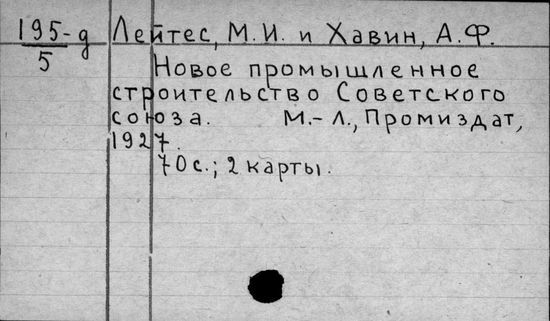 195-д Лейтес, М.И. и Хавин, А.Ф.
5
Новое промышленное
строительство Советского
союза. М.-Л., Промиздат,
1927.
70с.; 2 карты.